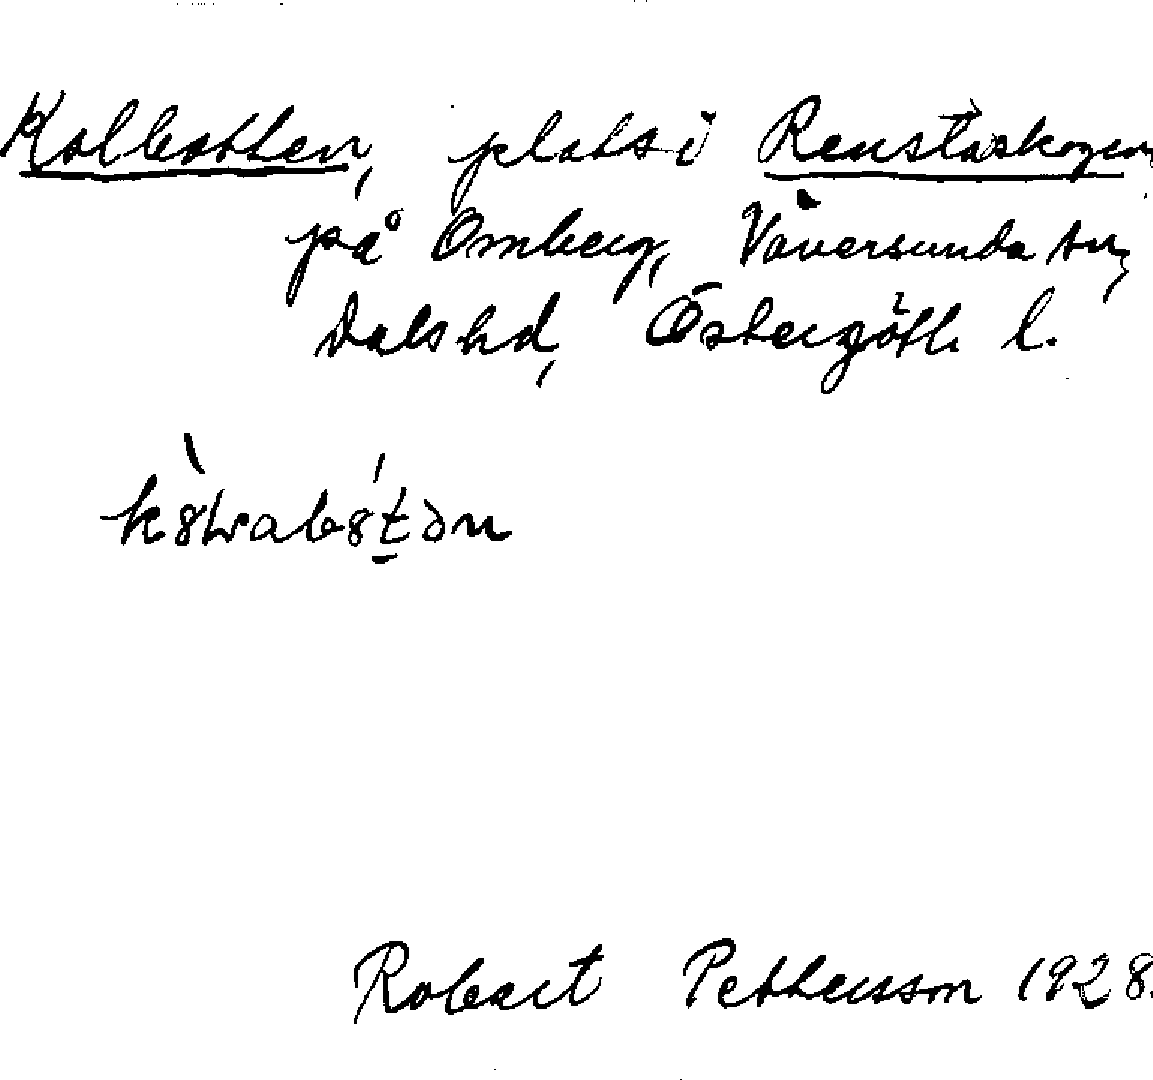 Kolbotten, plats i Renstaskogen
på Omberg, Väversunda sn,
Dals hd, Östergötl. l.
Robert Pettersson 1928.